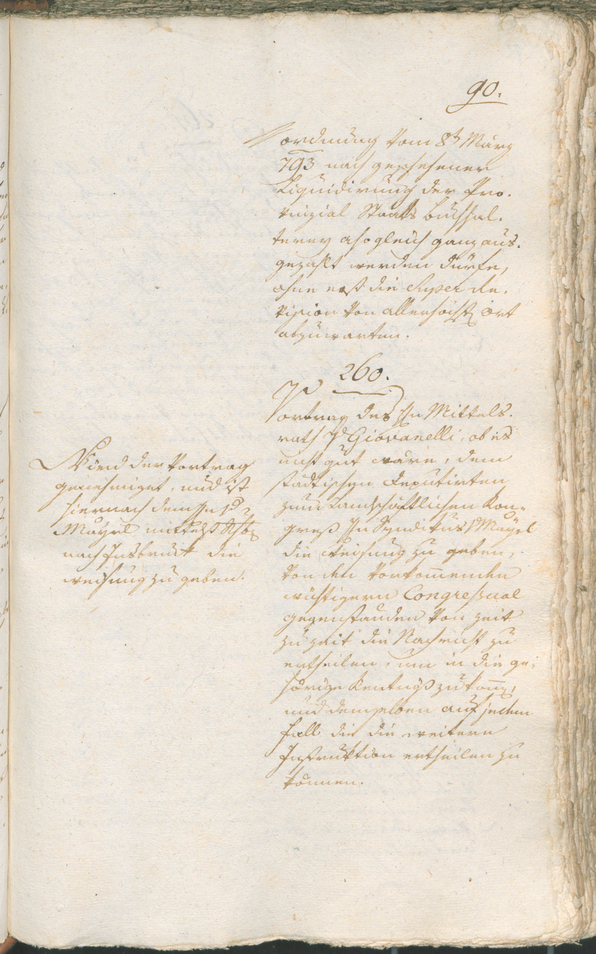 90.
ordnung vom 8t März
793 nach geschehener
Liquidirung der Pro-
vinzial Staats buchhal-
terey alsogleich ganz aus-
gezahlt werden dürfe,
ohne erst die Super Re-
vision von allerhöchst Ort
abzuwarten.
260.
Vortrag des Hn Mittels-
rath v Giovanelli, ob es
nicht gut wäre, dem
städtischen Deputirten
zum Landschäftlichen Kon-
greß Hn Syndikus Mayrl
die Weisung zu geben,
von den vorkommenden
wichtigern Congressual
gegenständen von Zeit
zu Zeit die Nachricht zu
ertheilen, um in die ge-
hörige Kentniß zu komen,
und demselben auf jeden
fall die weitern
Instruktion ertheilen zu
können.
Wird der Vortrag
genehmiget, und ist
hiernach dem Hn
Mayrl mittelst
nach Insbruck die
weisung zu geben.